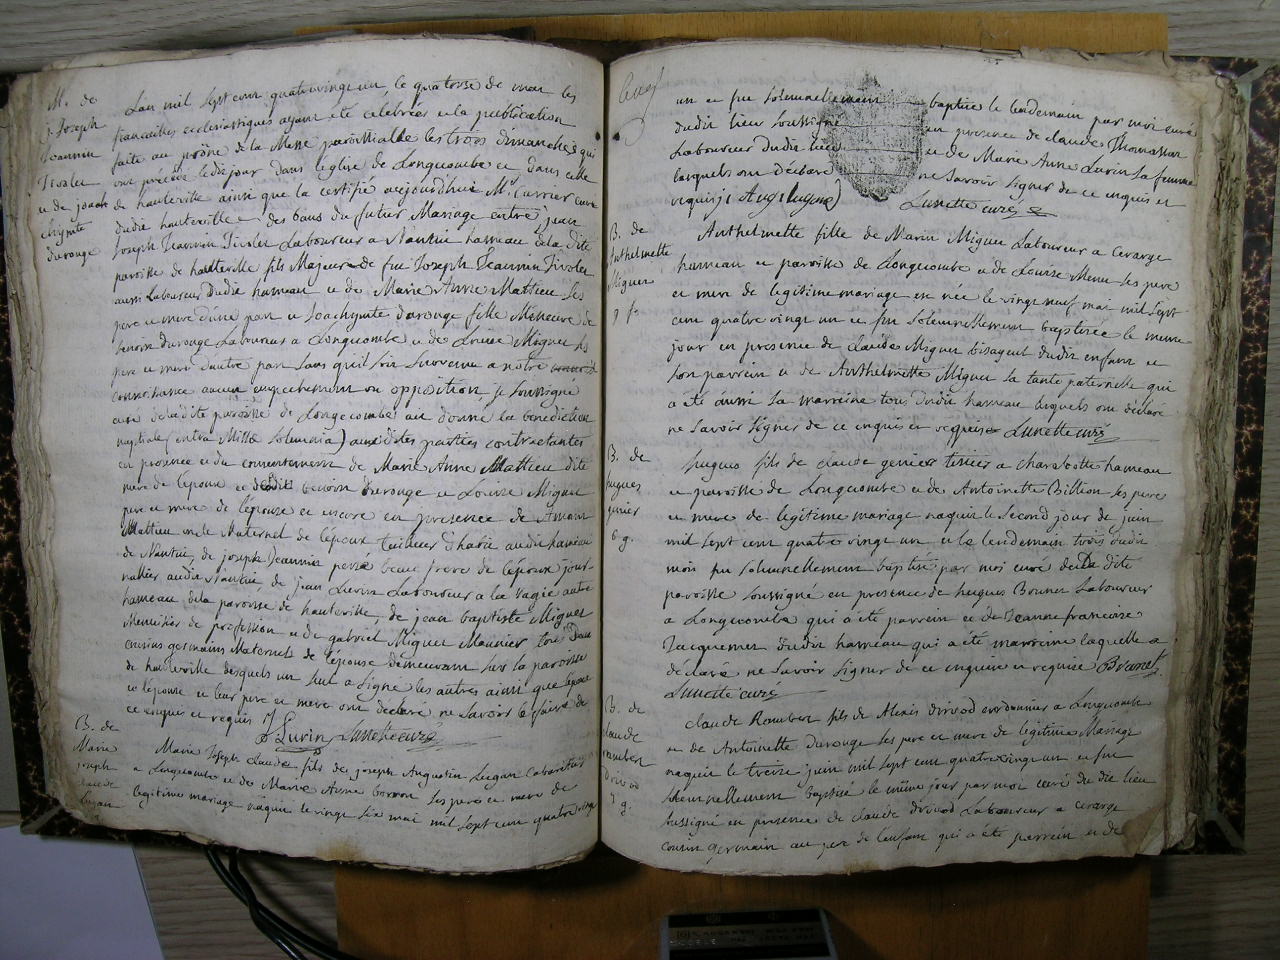 M. de
j. Joseph
Jeannin
Tivolet
et de joach
chymte
durouge
Lan mil sept cent quatrevingt un, le quatorse de may les
fiancailles ecclesiastiques ayant été celebrées et la publication
faite au prône de la Messe paroissialle les trois dimanches qui
ont précédé le dit jour dans leglise de Longecombe et dans celle
de hauteville ainsi que la certifié aujourdhui Mr Carrier curé
dudit hauteville des bans du futur Mariage entre jean
Joseph Jeannin Tivolet Laboureur a Nantui hameau de la dite
paroisse de hauteville fils Majeur de feu Joseph Jeannin Tivolet
aussi Laboureur dudit hameau et de Marie Anne Mattieu ses
pere et mere dune part et Joachymte durouge fille Mineure de
benoit durouge Laboureur a Longecombe et de Louise Miguet ses
pere et mere dautre part sans quil soit survenu a notre
connoissance aucun empechement ou opposition, je soussigné
curé de la dite paroisse de Longecombe ai donné la benediction
nuptiale (intra Missæ solemnia) aux dites parties contractantes
en presence et du consentement de Marie Anne Mattieu dite
mere de lépoux et dudit benoit durouge et Louise Miguet
pere et mere de lépouse et encore en presence de
Mattieu oncle Maternel de lépoux tailleur d'habit audit hameau
de Nantui, de joseph Jeannin beau frere de lépoux jour-
nallier audit Nantui, de jean Luvin Laboureur a la autre
hameau de la paroisse de hauteville, de jean baptiste Miguet
Menusier de profession et de gabriel Miguet Meunier tous deux
cousins germains Maternel de lépouse demeurant sur la paroisse
de hauteville desquels un seul a signé les autres ainsi que lépoux
et lépouse et leur pere et mere ont declaré ne savoir le faire de
ce enquis et requis J. Luvin Lunette curé
B. de
Marie
joseph
claude
Lugan
Marie Joseph Claude fils de joseph Augustin Lugan Cabaretier
a Longecombe et de Marie Anne borron ses pere et mere de
legitime mariage naquit le vingt six mai mil sept cent quatre vingt
un et fut solemnellement baptisé le lendemain par moi curé
dudit lieu soussigné en presence de claude Thomasset
Laboureur dudit lieu et de Marie Anne Luvin sa femme
lesquels ont déclaré ne savoir signer de ce enquis et
requis j Aug Lugand Lunette curé
B. de
Anthelmette
Miguet
9 f.
Anthelmette fille de Marin Miguet Laboureur a Cerarge
hameau et paroisse de Longecombe et de Louise Menu ses pere
et mere de legitime mariage est née le vingt neuf mai mil sept
cent quatre vingt un et fut solemnellement baptisée le meme
jour en presence de claude Miguet bisayeul dudit enfant et
son parrein et de Anthelmette Miguet sa tante paternelle qui
a été aussi sa marreine tous dudit hameau lesquels ont declaré
ne savoir signer de ce enquis et requis Lunette curé
B. de
hugues
genier
6 g.
hugues fils de claude genier tissier a charabotte hameau
et paroisse de Longecombe et de Antoinette Billion ses pere
et mere de légitime mariage naquit le second jour de juin
mil sept cent quatre vingt un et le lendemain trois dudit
mois fut solemnellement baptisé par moi curé de la dite
paroisse soussigné en presence de hugues Brunet Laboureur
a Longecombe qui a été parrein et de Jeanne francoise
Jacquemet dudit hameau qui a été marreine laquelle a
déclaré ne savoir signer de ce enquise et requise Brunet
Lunette curé
B. de
claude
rambert
divod
7 g.
claude Rambert fils de Alexis divod cordonnier a Longecombe
et de Antoinette Durouge ses pere et mere de legitime Mariage
naquit le treize juin mil sept cent quatre vingt un et fut
solemnellement baptisé le même jour par moi curé du dit lieu
soussigné en presence de claude divod Laboureur a cerarge
cousin germain au pere de l'enfant qui a été parrein et de